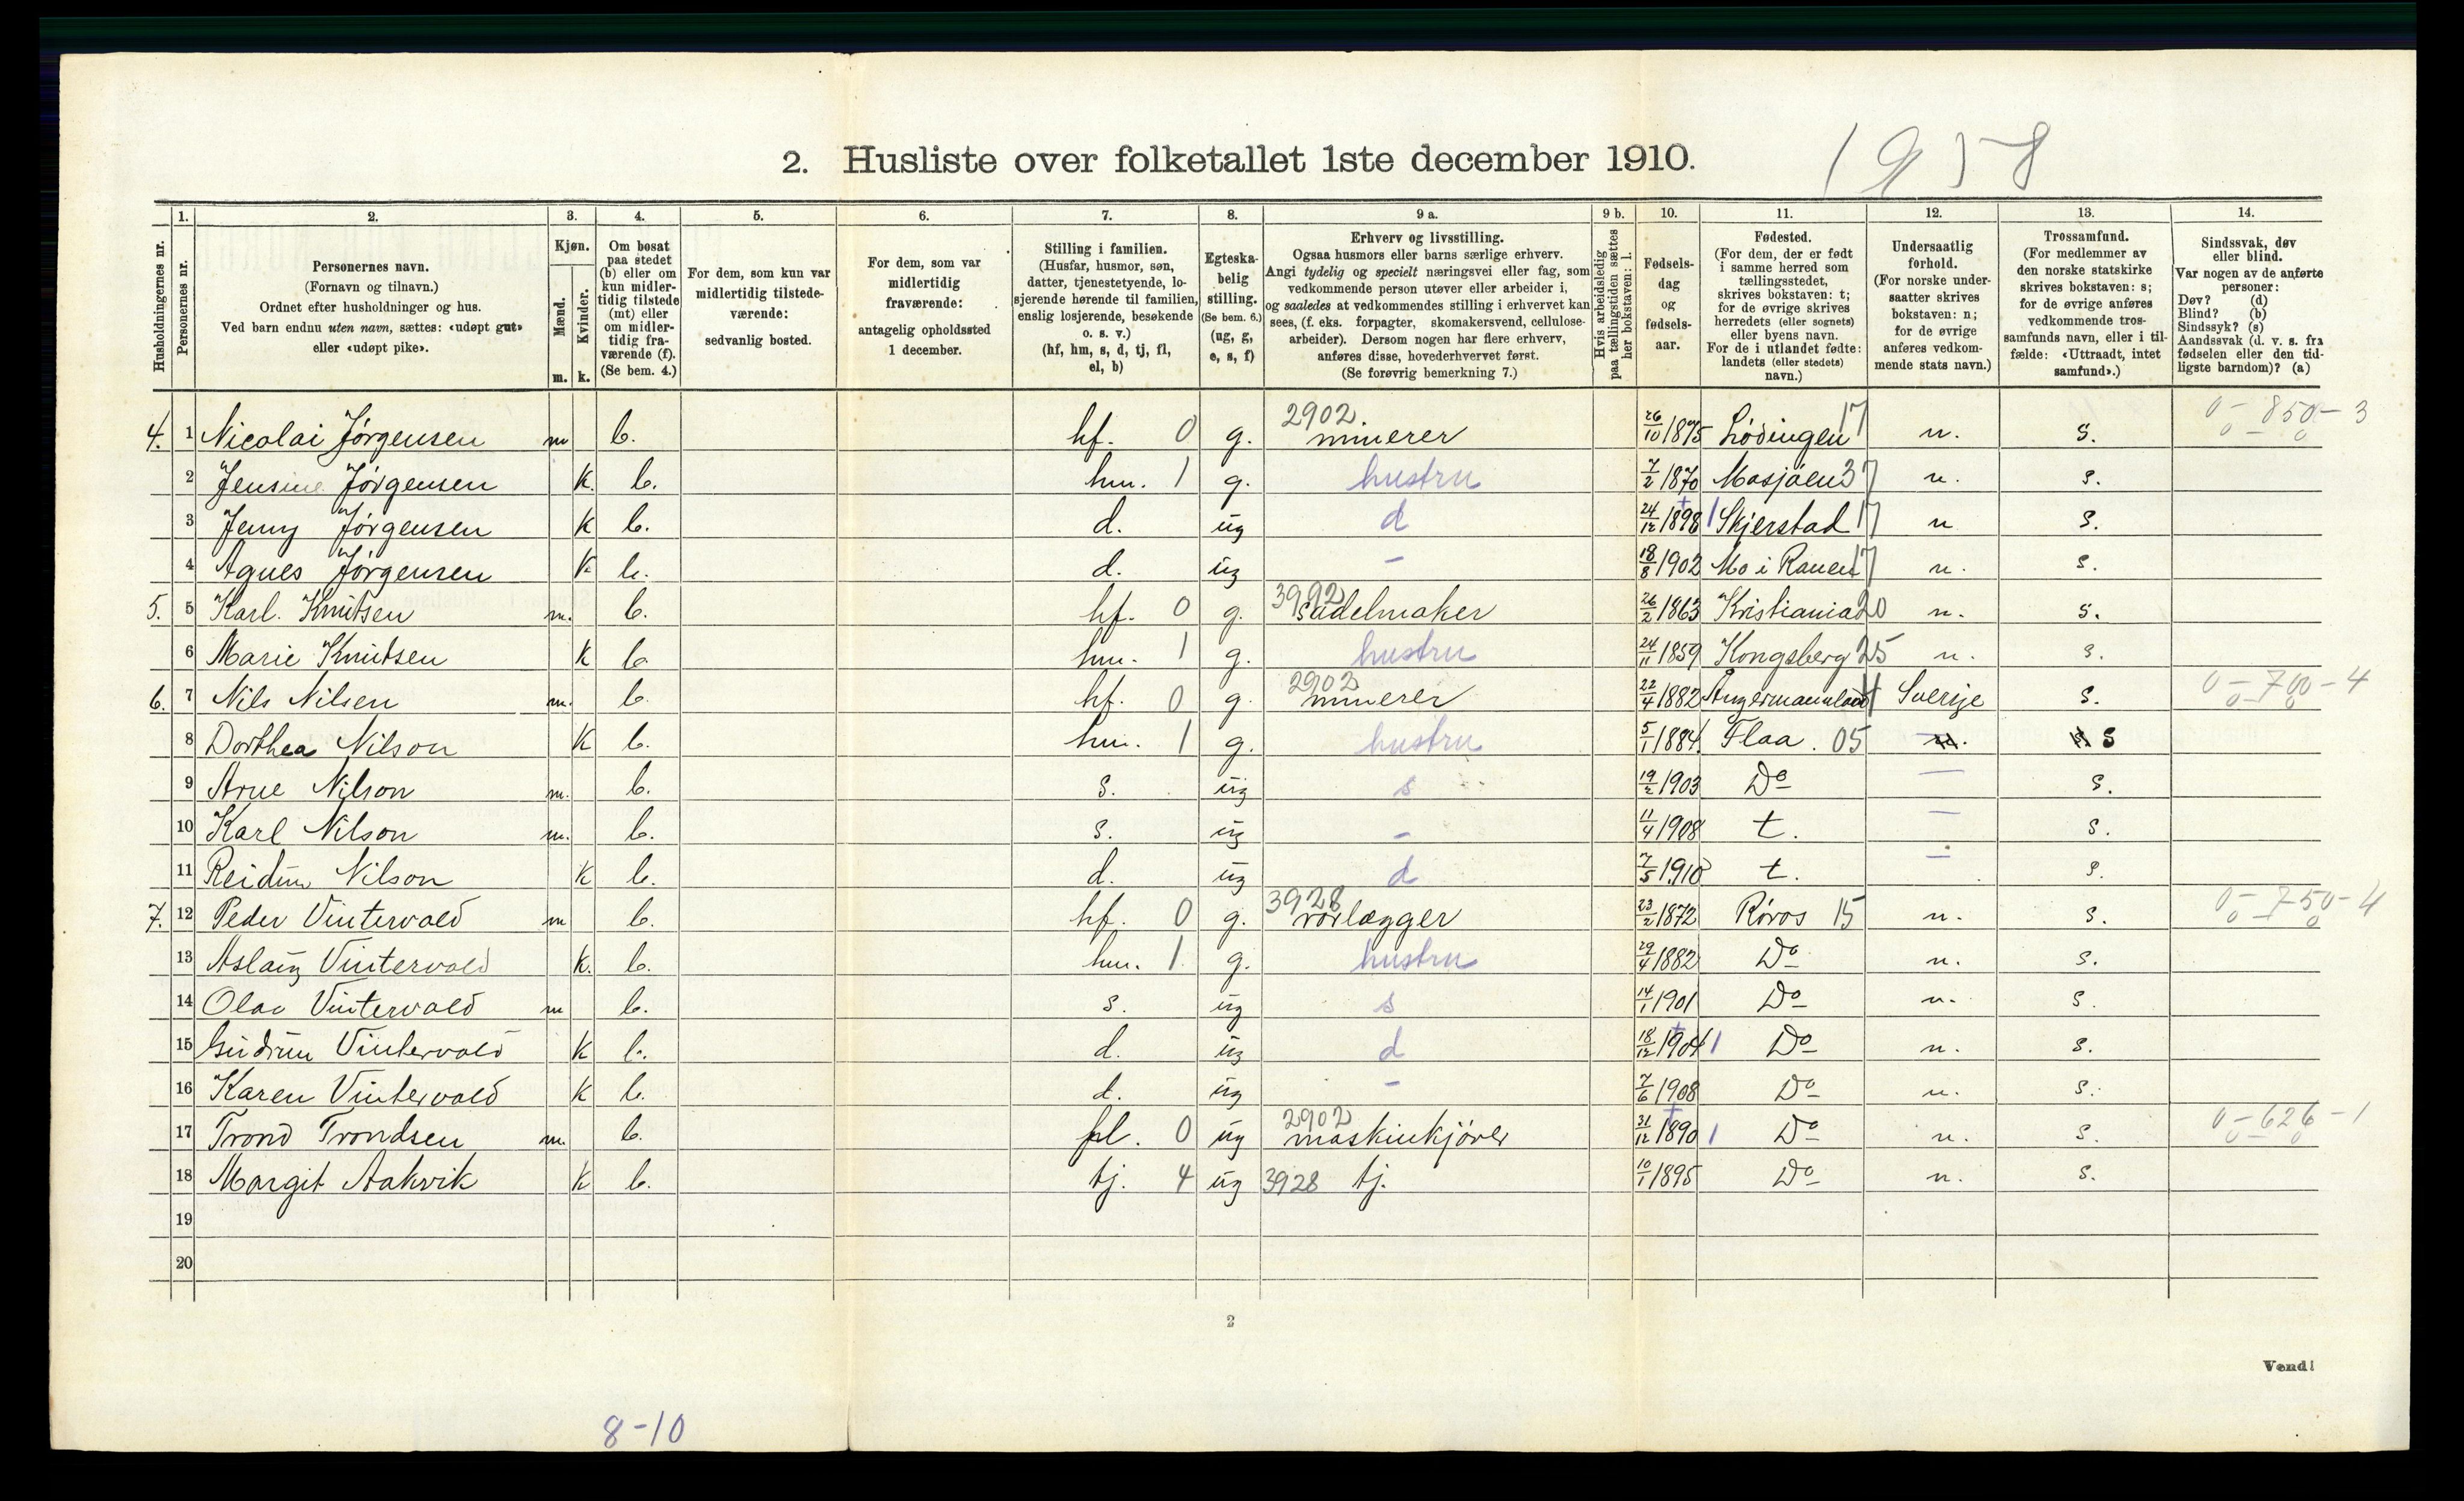 2. Husliste over folketallet 1ste december 1910.
1. 2. 3. 4. 5. 6. 7. 8. 9 a. 9 b. 10. 11. 12. 13. 14.
Husholdningernes nr.
Personernes nr.
Personernes navn.
(Fornavn og tilnavn.)
Ordnet efter husholdninger og hus.
Ved barn endnu uten navn, sættes: «udøpt gut»
eller «udøpt pike».
Kjøn.
Mænd.
Kvinder.
m. k.
Om bosat
paa stedet
(b) eller om
kun midler-
tidig tilstede
(mt) eller
om midler-
tidig fra-
værende (f).
(Se bem. 4.)
For dem, som kun var
midlertidig tilstede-
værende:
sedvanlig bosted.
For dem, som var
midlertidig
fraværende:
antagelig opholdssted
1 december.
Stilling i familien.
(Husfar, husmor, søn,
datter, tjenestetyende, lo-
sjerende hørende til familien,
enslig losjerende, besøkende
o. s. v.)
(hf, hm, s, d, tj, fl,
el, b)
Egteska-
belig
stilling.
(Se bem. 6.)
(ug, g,
e, s, f)
Erhverv og livsstilling.
Ogsaa husmors eller barns særlige erhverv.
Angi tydelig og specielt næringsvei eller fag, som
vedkommende person utøver eller arbeider i,
og saaledes at vedkommendes stilling i erhvervet kan
sees, (f. eks. forpagter, skomakersvend, cellulose-
arbeider). Dersom nogen har flere erhverv,
anføres disse, hovederhvervet først.
(Se forøvrig bemerkning 7.)
Hvis arbeidsledig
paa tællingstiden sættes
her bokstaven: l.
Fødsels-
dag
og
fødsels-
aar.
Fødested.
(For dem, der er født
i samme herred som
tællingsstedet,
skrives bokstaven: t;
for de øvrige skrives
herredets (eller sognets)
eller byens navn.
For de i utlandet fødte:
landets (eller stedets)
navn.)
Undersaatlig
forhold.
(For norske under-
saatter skrives
bokstaven: n;
for de øvrige
anføres vedkom-
mende stats navn.)
Trossamfund.
(For medlemmer av
den norske statskirke
skrives bokstaven: s;
for de øvrige anføres
vedkommende tros-
samfunds navn, eller i til-
fælde: «Uttraadt, intet
samfund».)
Sindssvak, døv
eller blind.
Var nogen av de anførte
personer:
Døv? (d)
Blind? (b)
Sindssyk? (s)
Aandssvak (d. v. s. fra
fødselen eller den tid-
ligste barndom)? (a)
4. 1 Nicolai Jørgensen m b. hf. 0 g. 2902 minerer 26/10 1875 Lødingen 17 n. s. 0-850-3
2 Jensine Jørgensen k. b. hm. 1 g. hustru 7/2 1870 Mosjøen 37 n. s.
3 Jenny Jørgensen k b. d. ug d 24/12 1898 1 Skjerstad 17 n s.
4 Agnes Jørgensen k b. d. ug - 18/8 1902 Mo i Ranen 17 n. s.
5. 5 Karl Knutsen m. b. hf. 0 g. 3992 sadelmaker 26/2 1863 Kristiania 20 n. s.
6 Marie Knutsen k b hm. 1 g. hustru 24/11 1859 Kongsberg 25 n. s.
6. 7 Nils Nilsen m. b. hf. 0 g. 2902 minerer 22/4 1882 Ångermanland Sverige s. 0-700-4
8 Dorthea Nilson k b. hm. 1 g. hustru 5/1 1884 Flaa. 05 n. s
9 Arne Nilson m. b. s. ug s 19/2 1903 Do - s.
10 Karl Nilson m. b. s. ug - 11/4 1908 t. - s.
11 Reidun Nilson k b. d. ug d 7/5 1910 t. - s.
7. 12 Peder Vintervold m b. hf. 0 g. 3928 rørlægger 23/2 1872 Røros 15 n. s. 0-750-4
13 Aslaug Vintervold k. b. hm. 1 g. hustru 29/4 1882 Do n. s.
14 Olav Vintervold m b. s. ug s 14/1 1901 Do n. s.
15 Gudrun Vintervold k b. d. ug d 18/12 1904 1 Do n. s.
16 Karen Vintervold k b. d. ug - 7/6 1908 Do n. s.
17 Trond Trondsen m. b. fl. 0 ug 2902 maskinkjører 31/12 1890 1 Do n. s. 0-626-1
18 Margit Aakvik k b. tj. 4 ug 3928 tj. 10/1 1895 Do n. s.
19
20
2
Vend!
8-10